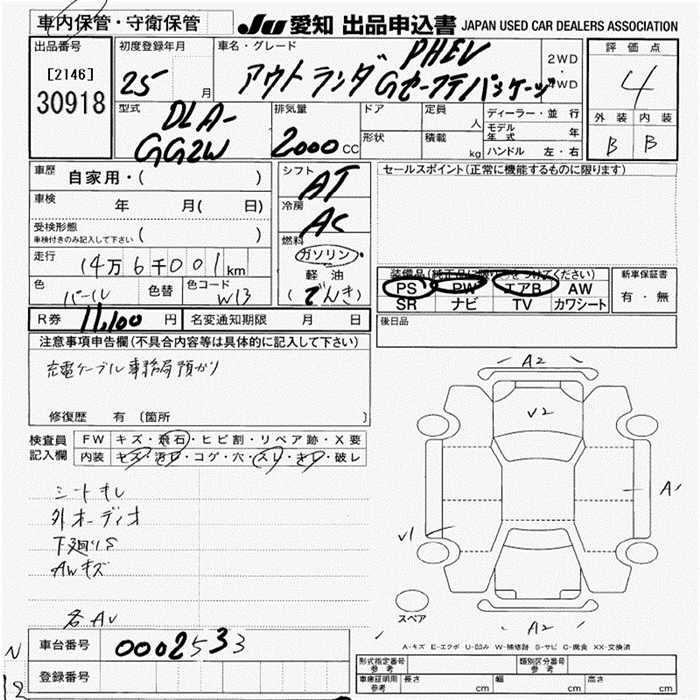 車内保管・守衛保管
JU 愛知 出品申込書 JAPAN USED CAR DEALERS ASSOCIATION
出品番号
[2146]
30918
初度登録年月
25 月
車名・グレード
PHEV
アウトランダ Gセーフティパッケージ
2WD
・
4WD
評価点
4
外装 内装
B B
型式
DLA-
GG2W
排気量
2000 CC
ドア
形状
定員
人
積載
kg
ディーラー・並行
モデル年式 年
ハンドル 左・右
車歴
自家用・( )
車検
年 月( 日)
受検形態
車検付きのみ記入して下さい ( )
走行
14万6千001km
色
パール
色替
色コード
W13
シフト
AT
冷房
AC
燃料
ガソリン
軽油
(でんき)
セールスポイント(正常に機能するものに限ります)
装備品(純正品に限り○をつけてください)
PS PW エアB AW
SR ナビ TV カワシート
新車保証書
有・無
後日品
R券 11,100 円
名変通知期限 月 日
注意事項申告欄(不具合内容等は具体的に記入して下さい)
充電ケーブル事務局預かり
修復歴 有〔箇所 〕
検査員
記入欄
FW キズ・飛石・ヒビ割・リペア跡・X要
内装 キズ・汚れ・コゲ・穴・スレ・キレ・破レ
シートキレ
外オーディオ
下廻りS
AWキズ
各AU
A2
V2
A1
V1
A2
スペア
A-キズ E-エクボ U-凹み W-補修跡 S-サビ C-腐食 XX-交換済
車台番号
0002533
登録番号
N
12
形式指定番号
参考
類別区分番号
参考
車庫証明用
参考
長さ cm
幅 cm
高さ cm